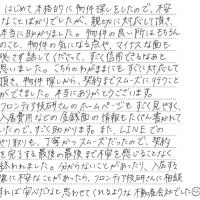 はじめて本格的に物件探しをしたので、不安
なことばかりでしたが、親切に対応して頂き、
本当に助かりました。物件の良い所はもちろん
のこと、物件の気になる点や、マイナスな面も
隠さず話してくださって、すごく信用できるなあと
思いました。こちらのわがままにもすぐに対応して
頂き、物件探しから、契約までスムーズに行うこと
ができました。本当にありがとうございます。
フロンティア技研さんのホームページもすごく見やすく、
入居費用などの金銭面の情報もたくさん書かれて
いたので、すごく助かります。また、LINEでの
やり取りも、丁寧かつスムーズだったので、契約
を完了する最後の最後まで不安を感じることなく
終われました。分からないことがあったり、入居する
際に不安なことがあったら、フロンティア技研さんに相談
すれば安心だなと思わせてくれるような不動産会社でした